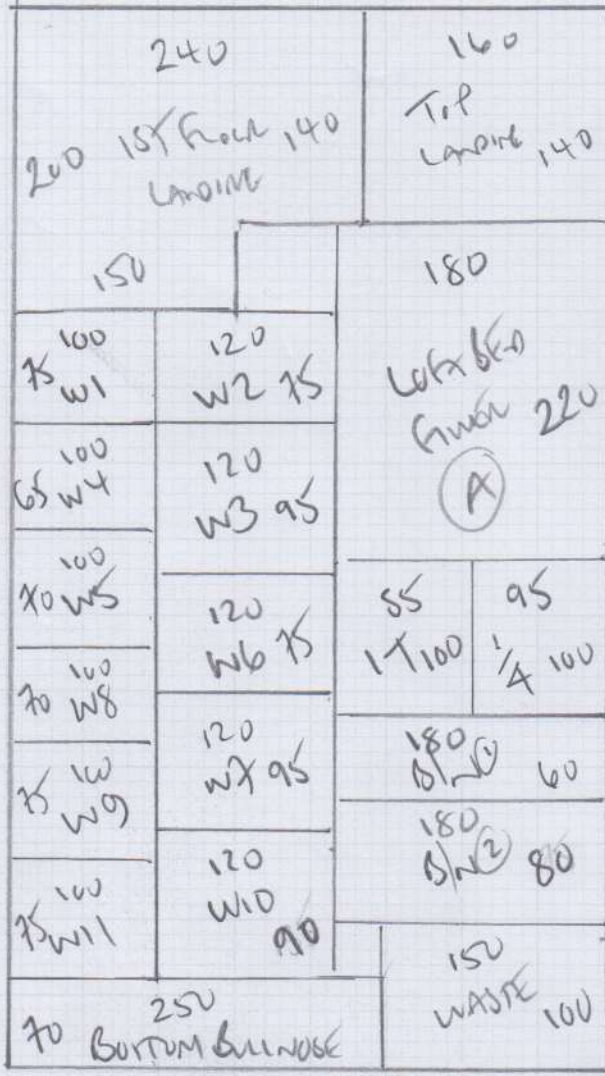 240
200 1ST FLOOR 140
LANDING
150
160
TOP
LANDING 140
180
LOFT BED
220
A
100
75 W1
120
W2 75
100
65 W4
120
W3 95
100
70 W5
120
W6 75
100
70 W8
120
W7 95
100
75 W9
120
W10
90
100
75 W11
85
1T 100
95
1/4 100
180
B/N 1 60
180
B/N 2 80
150
WASTE 100
250
70 BOTTOM BULLNOSE